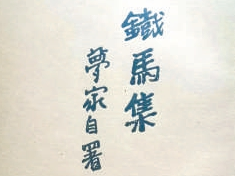 鐵馬集
夢家自署